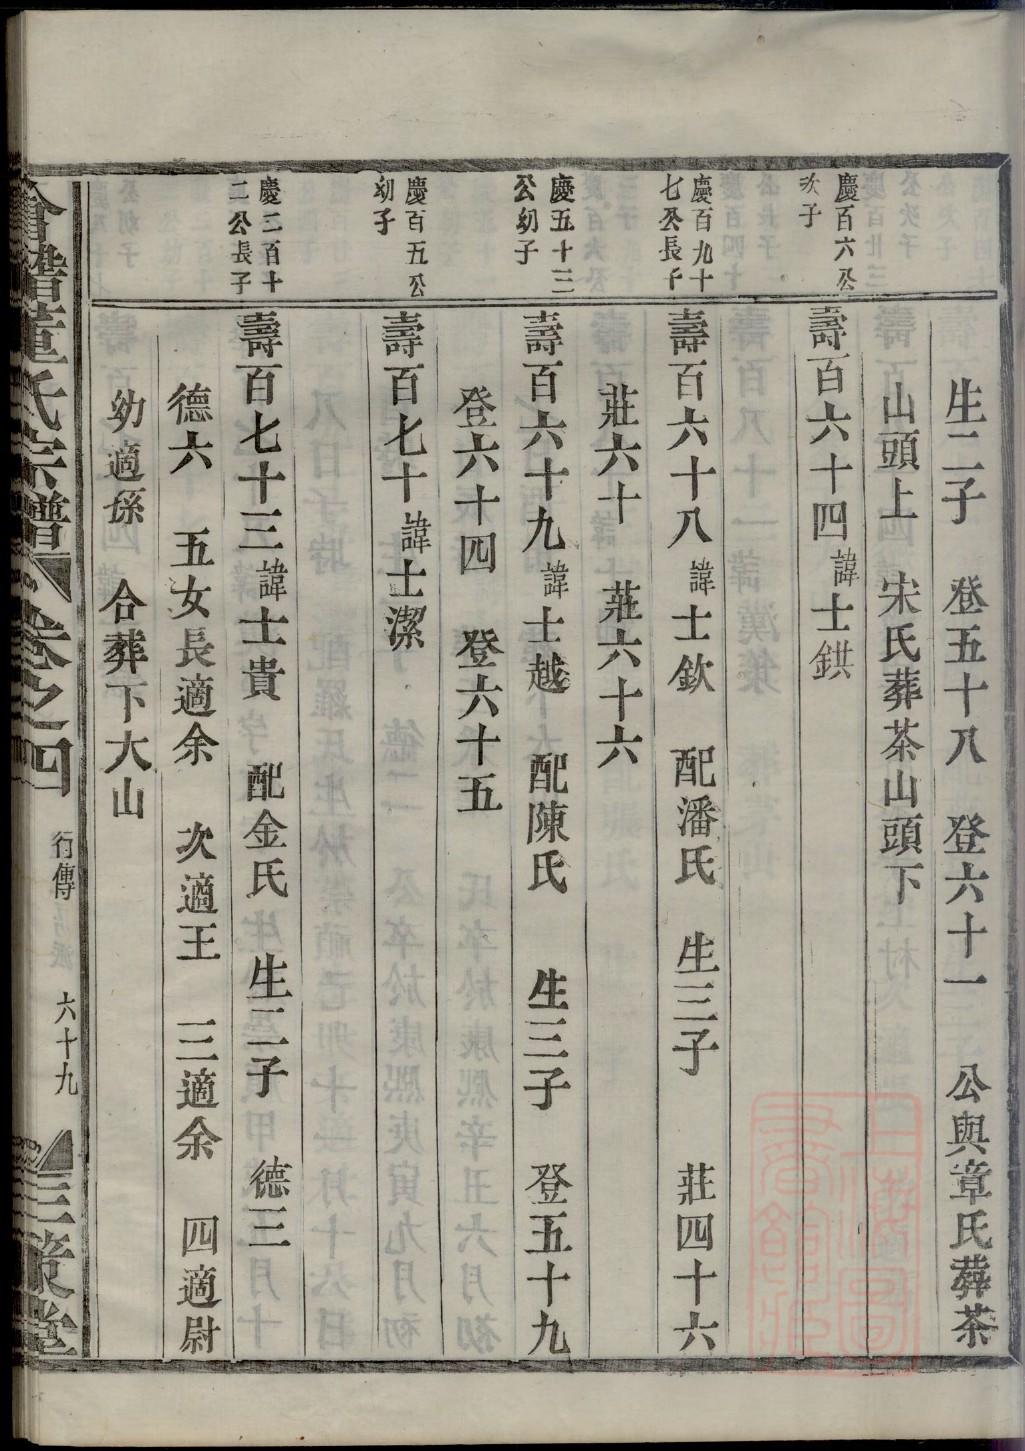 生二子　登五十八　登六十一　公與章氏葬茶
山頭上　宋氏葬茶山頭下
慶百六公
次子
壽百六十四諱士鉷
慶百九十
七公長子
壽百六十八諱士欽　配潘氏　生三子　莊四十六
莊六十　莊六十六
慶五十三
公幼子
壽百六十九諱士越　配陳氏　生三子　登五十九
登六十四　登六十五
慶百五公
幼子
壽百七十諱士潔
慶二百十
二公長子
壽百七十三諱士貴　配金氏　生二子　德三
德六　五女長適余　次適王　三適余　四適尉
幼適孫　合葬下大山
會稽董氏宗譜　卷之四　行傳　六十九　三策堂